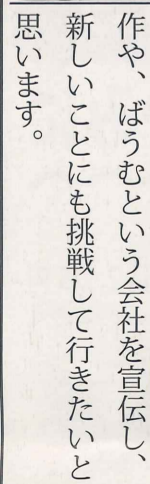 作や、ばうむという会社を宣伝し、
新しいことにも挑戦して行きたいと
思います。